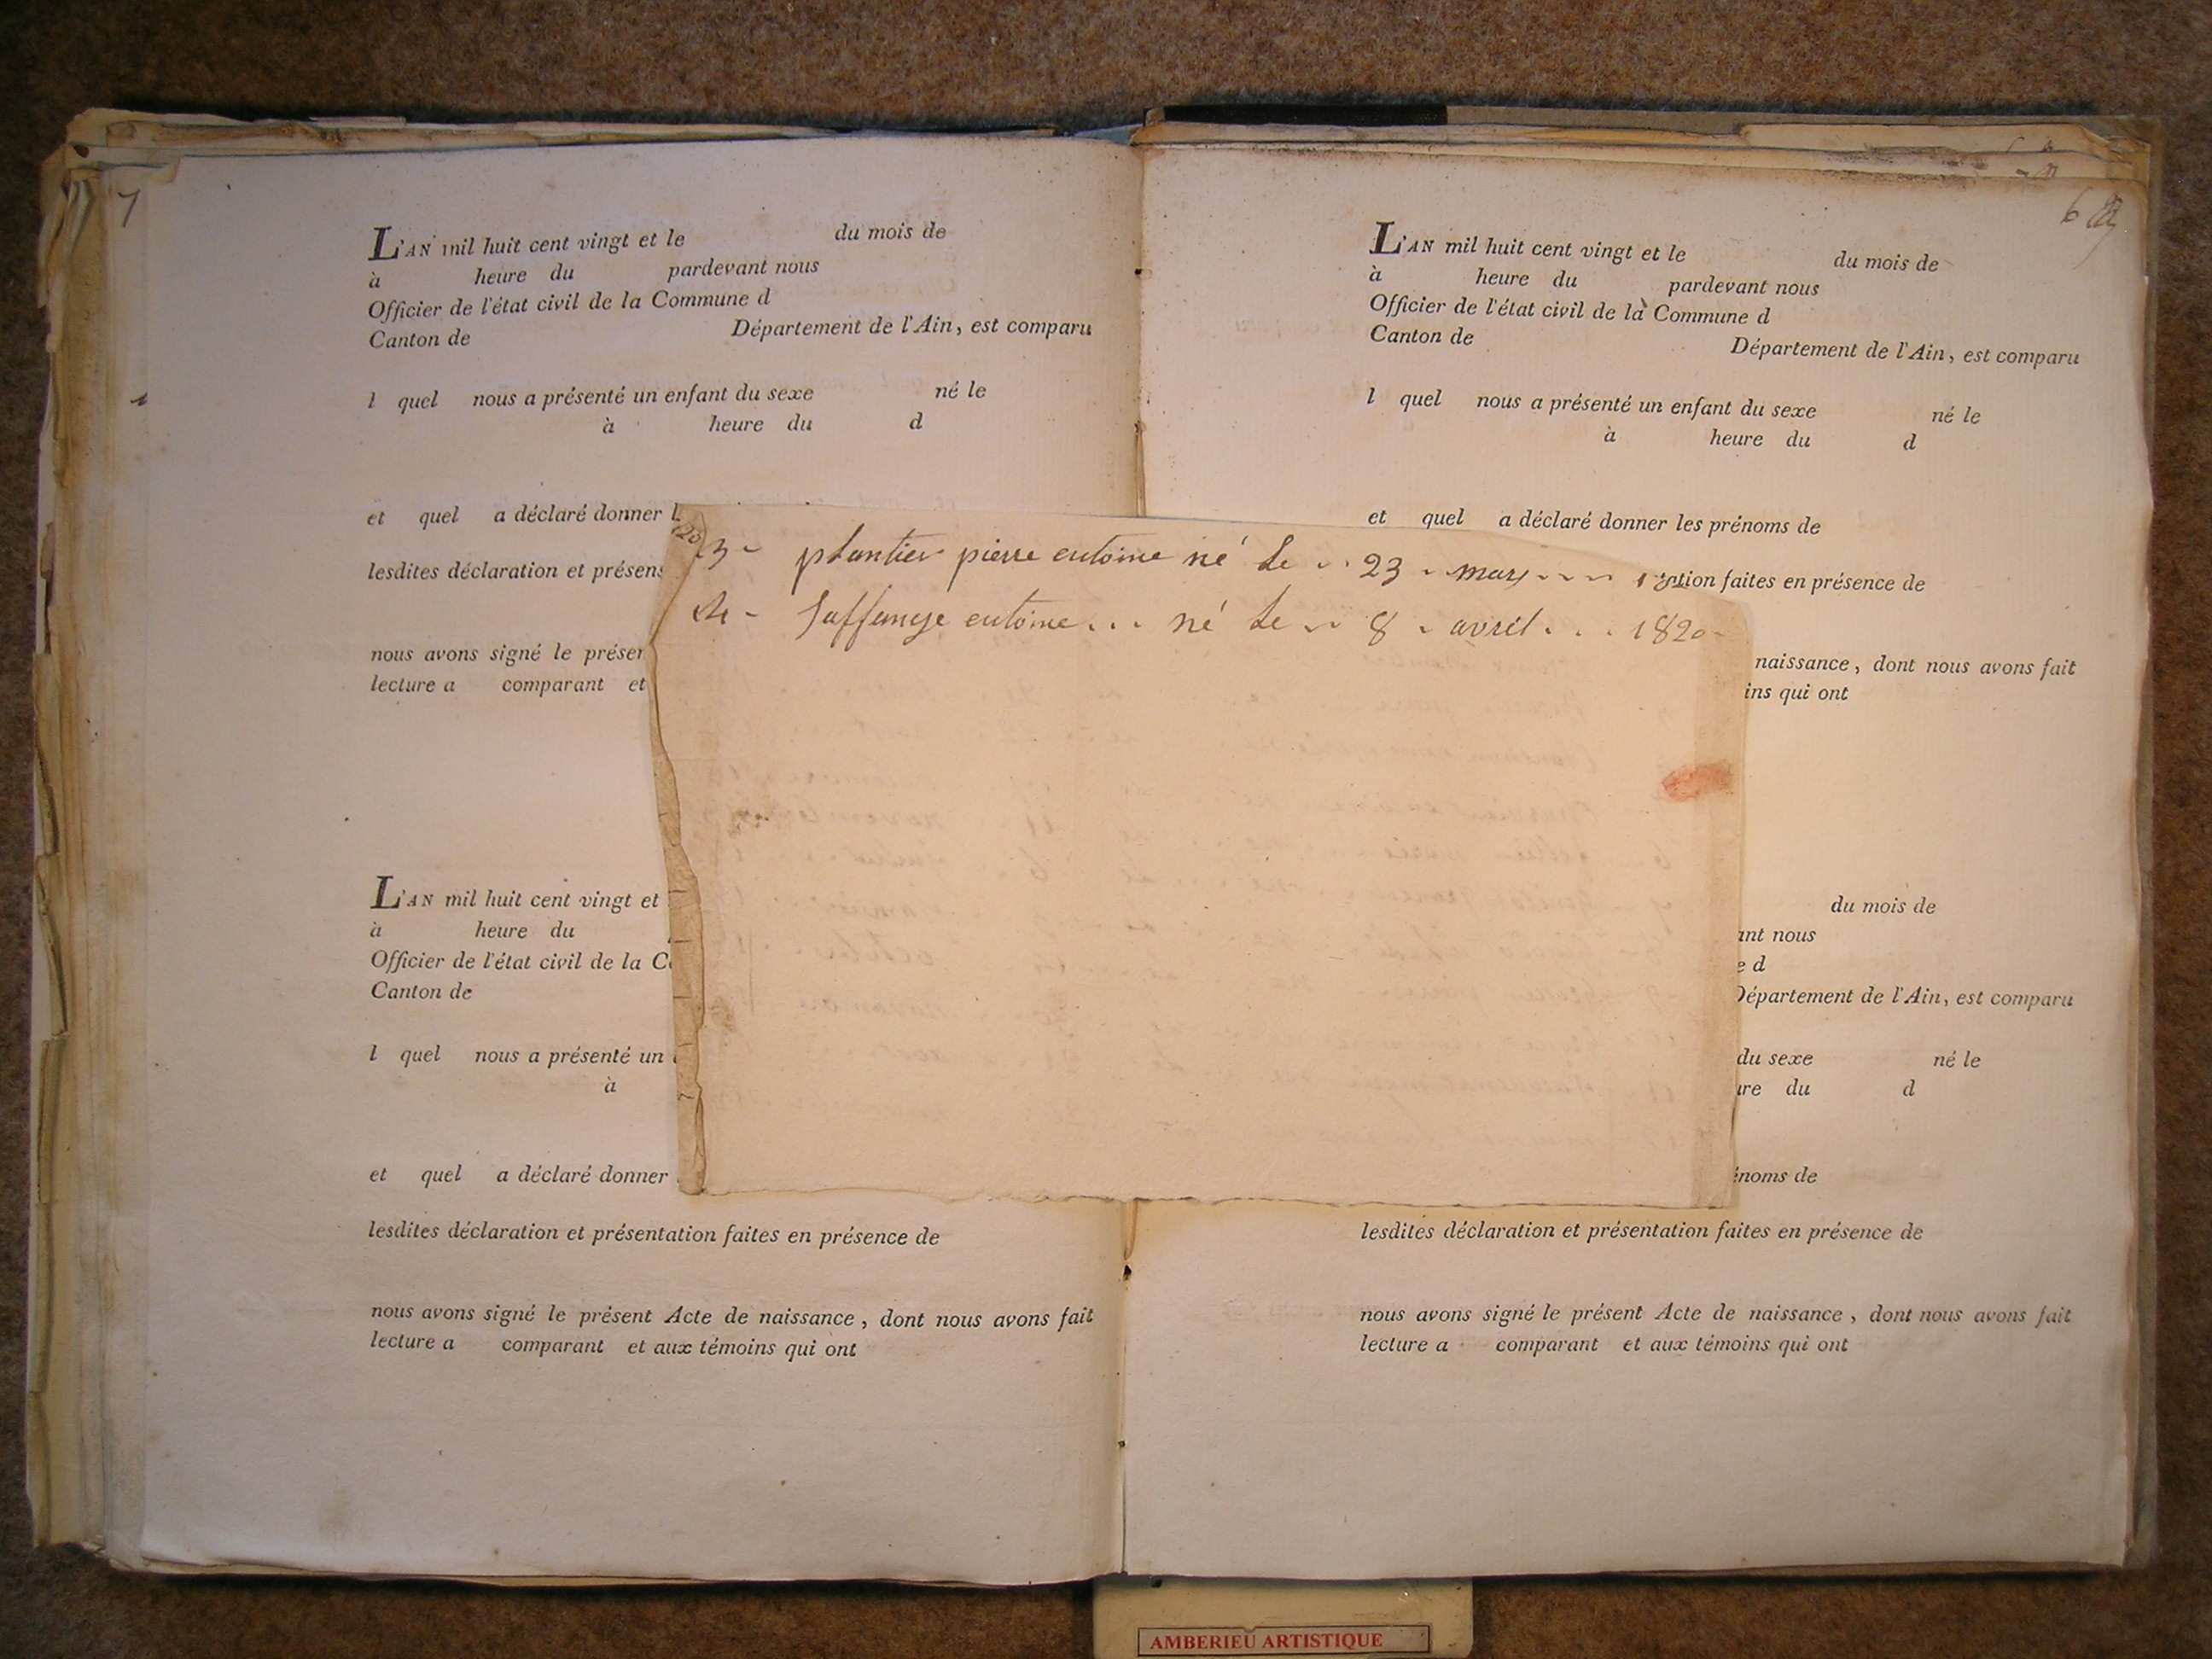 7
L'AN mil huit cent vingt et le du mois de
à heure du pardevant nous
Officier de l'état civil de la Commune d
Canton de Département de l'Ain, est comparu
l quel nous a présenté un enfant du sexe né le
à heure du d
et quel a déclaré donner l
lesdites déclaration et présen
nous avons signé le présen
lecture a comparant et
L'AN mil huit cent vingt et
à heure du
Officier de l'état civil de la C
Canton de
l quel nous a présenté un
à
et quel a déclaré donner
lesdites déclaration et présentation faites en présence de
nous avons signé le présent Acte de naissance, dont nous avons fait
lecture a comparant et aux témoins qui ont
3 - plantier pierre entoine né le 23 mars
né le 8 avril ... 1820
6
L'AN mil huit cent vingt et le du mois de
à heure du pardevant nous
Officier de l'état civil de la Commune d
Canton de Département de l'Ain, est comparu
l quel nous a présenté un enfant du sexe né le
à heure du d
et quel a déclaré donner les prénoms de
tion faites en présence de
naissance, dont nous avons fait
ins qui ont
du mois de
ant nous
e d
Département de l'Ain, est comparu
du sexe né le
ure du d
énoms de
lesdites déclaration et présentation faites en présence de
nous avons signé le présent Acte de naissance, dont nous avons fait
lecture a comparant et aux témoins qui ont
AMBERIEU ARTISTIQUE